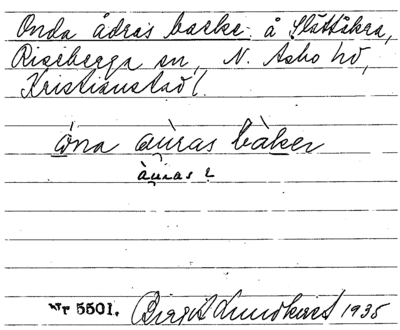 Onda ådras backe å Slättåkra,
Riseberga sn, N. Åsbo hd,
Kristianstad l.
ó̱na aù̯ras bàkeṉ
àu̯ras ?
Nr 5501. Birgit Lundkvist 1935